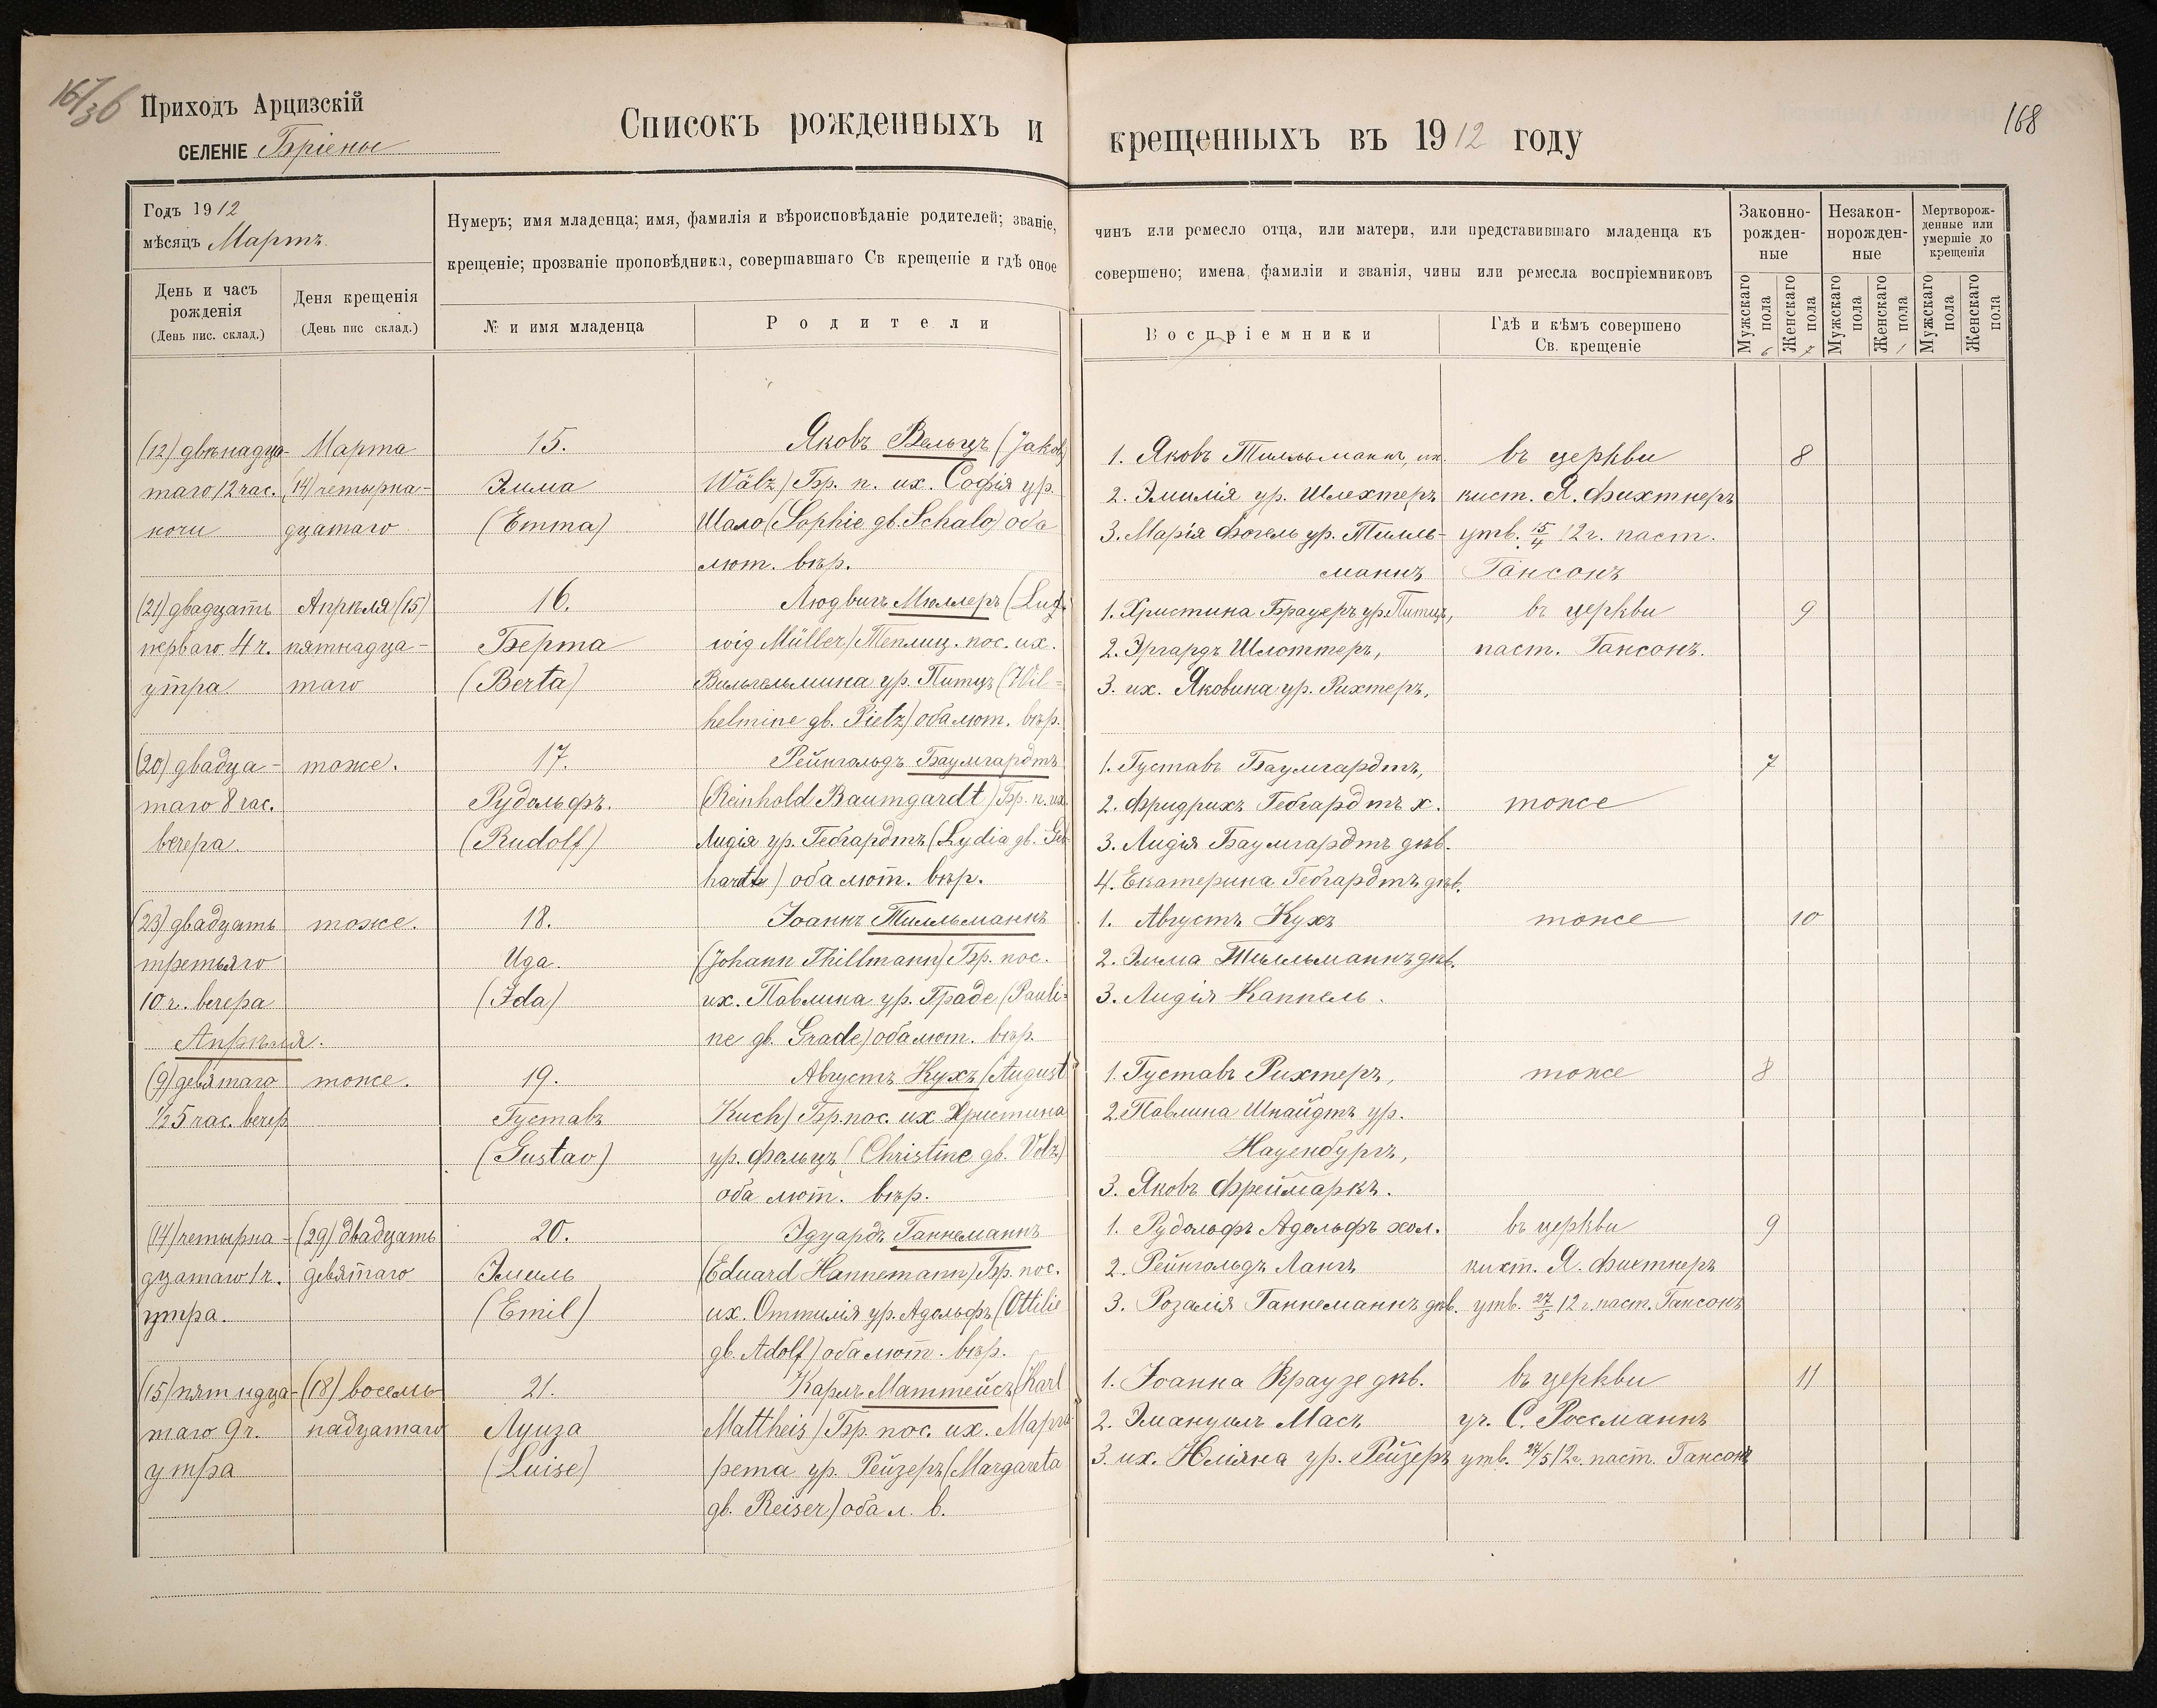 16/36
Приходъ Арцизскій
СЕЛЕНІЕ Бріены
Списокъ рожденныхъ и
крещенныхъ въ 1912 году
168
Годъ 1912
мѣсяцъ Мартъ.
День и часъ
рожденія
(День пис. склад.)
Деня крещенія
(День пис склад.)
Нумеръ; имя младенца; имя, фамилія и вѣроисповѣданіе родителей; званіе,
крещеніе; прозваніе проповѣдника, совершавшаго Св крещеніе и гдѣ оное
№ и имя младенца
Родители
чинъ или ремесло отца, или матери, или представившаго младенца къ
совершено; имена, фамиліи и званія, чины или ремесла воспріемниковъ
Воспріемники
Гдѣ и кѣмъ совершено
Св. крещеніе
Законно-
рожден-
ные
Незакон-
норожден-
ные
Мертворож-
денные или
умершіе до
крещенія
Мужскаго пола 6
Женскаго пола 7
Мужскаго пола
Женскаго пола 1
Мужскаго пола
Женскаго пола
(12) двѣнадца-
таго 12 час.
ночи
Марта
(14) четырна-
дцатаго
15.
Эмма
(Emma)
Яковъ Вельцъ (Jakob
Wälz) Бр. п. их. Софія ур.
Шало (Sophie gb. Schalo) оба
лют. вѣр.
1. Яковъ Тилльманнъ, их.
2. Эмилія ур. Шлехтеръ
3. Марія Фогель ур. Тилль-
маннъ
въ церкви
кист. Я. Фихтнеръ
утв. 15/4 12 г. паст.
Гансонъ
8
(21) двадцать
перваго 4 ч.
утра
Апрѣля (15)
пятнадца-
таго
16.
Берта
(Berta)
Людвигъ Мюллеръ (Lud-
wig Müller) Теплиц. пос. их.
Вильгельмина ур. Питцъ (Wil-
helmine gb. Pietz) оба лют. вѣр.
1. Христина Брауеръ ур. Питцъ,
2. Эргардъ Шлоттеръ,
3. их. Яковина ур. Рихтеръ,
въ церкви
паст. Гансонъ.
9
(20) двадца-
таго 8 час.
вечера.
тоже.
17.
Рудольфъ.
(Rudolf)
Рейнгольдъ Баумгардтъ
(Reinhold Baumgardt) Бр. п. их.
Лидія ур. Гебгардтъ (Lydia gb. Geb-
hardt) оба лют. вѣр.
1. Густавъ Баумгардтъ,
2. Фридрихъ Гебгардтъ х.
3. Лидія Баумгардтъ дѣв.
4. Екатерина Гебгардтъ дѣв.
тоже
7
(23) двадцать
третьяго
10 ч. вечера
тоже.
18.
Ида.
(Ida)
Іоаннъ Тилльманнъ
(Johann Thillmann) Бр. пос.
их. Павлина ур. Граде (Pauli-
ne gb. Grade) оба лют. вѣр.
1. Августъ Кухъ
2. Эмма Тилльманнъ дѣв.
3. Лидія Каппель.
тоже
10
Апрѣля.
(9) девятаго
½5 час. вечер
тоже.
19.
Густавъ
(Gustav)
Августъ Кухъ (August
Kuch) Бр. пос. их. Христина
ур. Фольцъ (Christine gb. Volz)
оба лют. вѣр.
1. Густавъ Рихтеръ,
2. Павлина Шнайдтъ ур.
Науенбургъ,
3. Яковъ Фреймаркъ.
тоже
8
(14) четырна-
дцатаго 1 ч.
утра.
(29) двадцать
девятаго
20.
Эмиль
(Emil)
Эдуардъ Ганнеманнъ
(Eduard Hannemann) Бр. пос.
их. Оттилія ур. Адольфъ (Ottilie
gb. Adolf) оба лют. вѣр.
1. Рудольфъ Адольфъ хол.
2. Рейнгольдъ Лангъ
3. Розалія Ганнеманнъ дѣв.
въ церкви
кист. Я. Фихтнеръ
утв. 27/5 12 г. паст. Гансонъ
9
(15) пятнадца-
таго 9 ч.
утра
(18) восемь-
надцатаго
21.
Луиза
(Luise)
Карлъ Маттейсъ (Karl
Mattheis) Бр. пос. их. Марга-
рета ур. Рейзеръ (Margareta
gb. Reiser) оба л. в.
1. Іоанна Краузе дѣв.
2. Эмануилъ Масъ
3. их. Юліяна ур. Рейзеръ
въ церкви
уч. С. Россманнъ
утв. 27/5 12 г. паст. Гансонъ
11